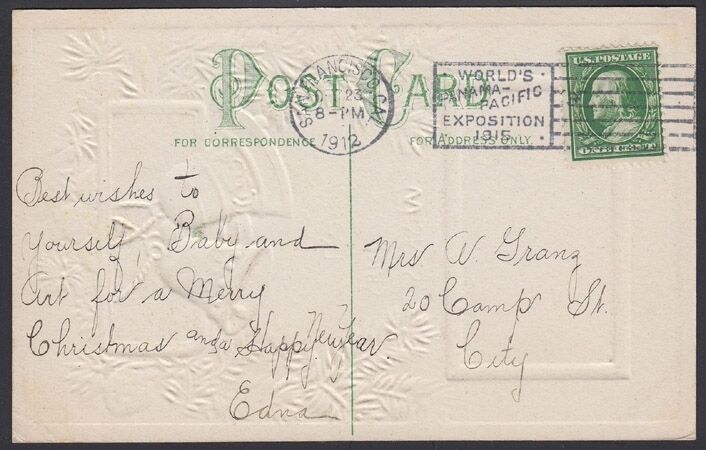 POST CARD
FOR CORRESPONDENCE
FOR ADDRESS ONLY
SAN FRANCISCO, CAL.
23
8-PM
1912
WORLD'S
PANAMA-
PACIFIC
EXPOSITION
1915
U.S. POSTAGE
Best wishes to
Yourself, Baby and
Art for a Merry
Christmas and a Happy New Year
Edna
Mrs W. Granz
20 Camp St.
City